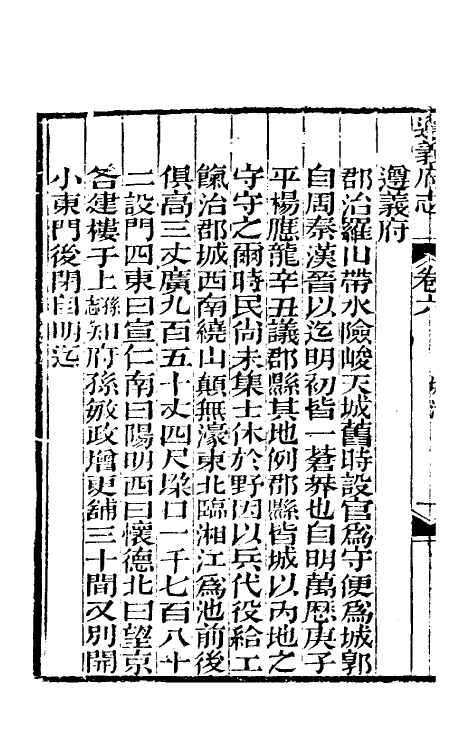 遵義府志 卷六
遵義府
郡治羅山帶水險峻天城舊時設官爲守便爲城郭
自周秦漢晉以迄明初皆一莽莽也自明萬歷庚子
平楊應龍辛丑議郡縣其地例郡縣皆城以丙地之
守守之爾時民尚未集士休於野因以兵代役給工
餼治郡城西南繞山顛無濠東北臨湘江爲池前後
俱高三丈廣九百五十丈四尺垜口一千七百八十
二設門四東曰宣仁南曰陽明西曰懷德北曰望京
各建樓于上孫志知府孫敏政增更舖三十間又別開
小東門後閉自明迄